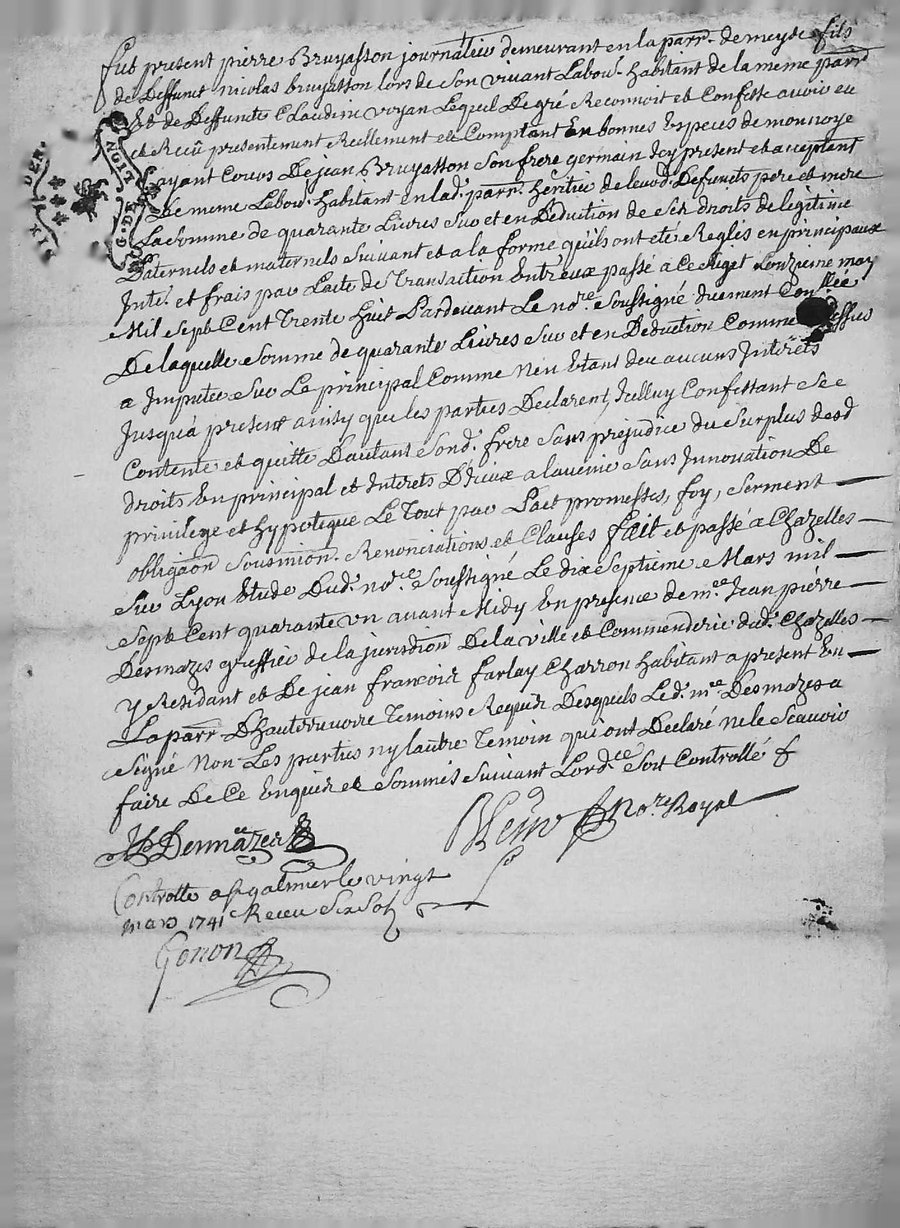 fut present pierre Bruyasson journalier demeurant en la parr. de meys fils
de Deffunct nicolas bruyasson lors de Son vivant Labour. habitant de la meme parr
Et de Deffuncte Claudine voyan Lequel De gré Reconnoit et Confesse avoir eu
et Receu presentement Reellement et Comptant En bonnes Especes de monnoye
ayant Cours De jean Bruyasson Son frere germain Icy present et acceptant
De meme Labour. habitant en lad. parr. heritier de leursd. Defuncts pere et mere
La Somme de quarante Livres Sur et en Deduction de Ses droits de legitime
Paternels et maternels Suivant et a la forme qu'ils ont eté Reglés en principaux
Inte. et frais par L'acte de Transaction Entreux passé a Ce Sujet Le onzieme may
Mil Sept Cent Trente huit Pardevant Le nore. Soussigné duement Conllée
De laquelle Somme de quarante Livres Sur et en Deduction Comme dessus
a Imputer Sur Le principal Comme N'en Etant deu aucuns Interets
Jusqu'a present ainsy que les parties Declarent, Icelluy Confessant Se
Contente et quitte D'autant Sond. frere Sans prejudice du Surplus desd
droits En principal et Interets D'iceux a lavenir Sans Innovation De
privilege et hypoteque Le Tout par Lad. promesses, foy, Serment
obligaon Sousmion. Renonciations et Clauses fait et passé a Chazelles
Sur Lyon Etude Dud. nore. Soussigné Le dix Septieme Mars mil
Sept Cent quarante un avant Midy En presence de me. Jean pierre
Desmazes greffier de la jurisdion De la ville et Commenderie dud. Chazelles
y Residant et De jean françois farlay Charron habitant a present En
La parr D'hauterrivoire Temoins Requis Desquels Led. me. Desmazes a
Signé Non Les parties ny lautre Temoin qui ont Declaré ne le Scavoir
faire De Ce Enquis et Sommés Suivant Lordce. Soit Controllé
Desmazes
Nore. Royal
Controlle a St galmier le vingt
mars 1741 Receu Six Sols
Gonon